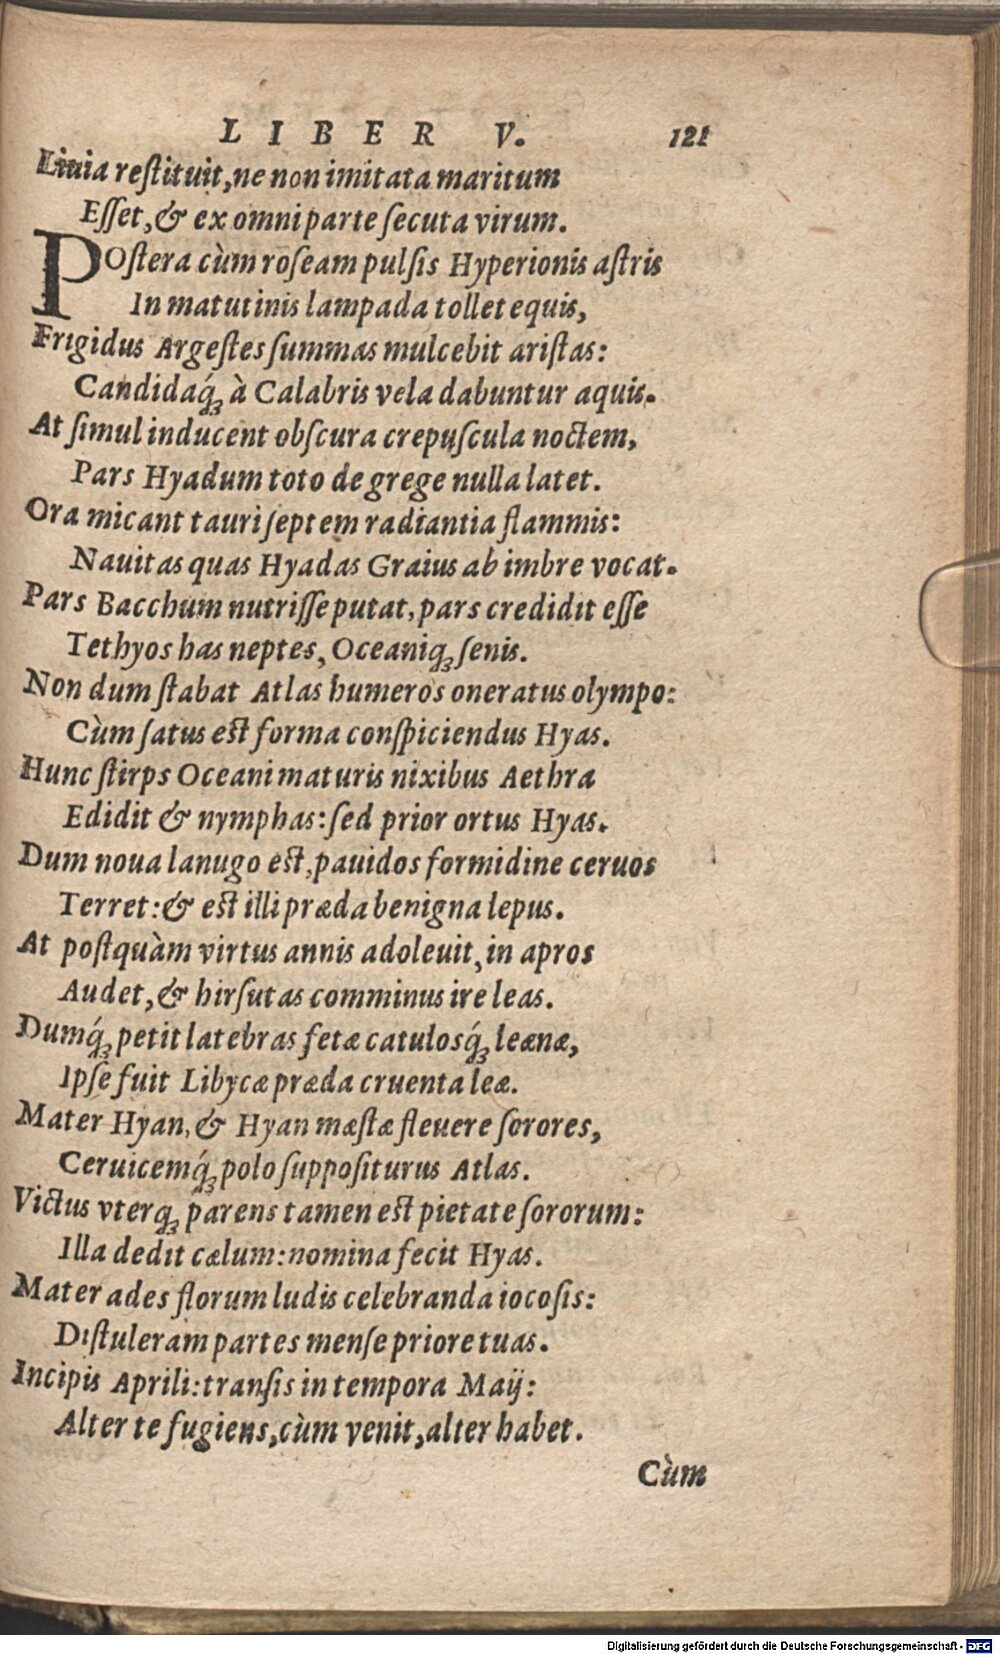 LIBER V. 121
Liuia reſtituit, ne non imitata maritum
Eſſet, & ex omni parte ſecuta virum.
POſtera cùm roſeam pulſis Hyperionis aſtris
In matutinis lampada tollet equis,
Frigidus Argeſtes ſummas mulcebit ariſtas:
Candidaq́ꝫ à Calabris vela dabuntur aquis.
At ſimul inducent obſcura crepuſcula noctem,
Pars Hyadum toto de grege nulla latet.
Ora micant tauri ſeptem radiantia flammis:
Nauitas quas Hyadas Graius ab imbre vocat.
Pars Bacchum nutriſſe putat, pars credidit eſſe
Tethyos has neptes, Oceaniqꝫ ſenis.
Non dum ſtabat Atlas humeros oneratus olympo:
Cùm ſatus eſt forma conſpiciendus Hyas.
Hunc ſtirps Oceani maturis nixibus Aethra
Edidit & nymphas: ſed prior ortus Hyas.
Dum noua lanugo eſt, pauidos formidine ceruos
Terret: & eſt illi præda benigna lepus.
At poſtquàm virtus annis adoleuit, in apros
Audet, & hirſutas comminus ire leas.
Dumq́ꝫ petit latebras fetæ catulosq́ꝫ leænæ,
Ipſe fuit Libycæ præda cruenta leæ.
Mater Hyan, & Hyan mæſtæ fleuere ſorores,
Ceruicemq́ꝫ polo ſuppoſiturus Atlas.
Victus vterqꝫ parens tamen eſt pietate ſororum:
Illa dedit cælum: nomina fecit Hyas.
Mater ades florum ludis celebranda iocoſis:
Diſtuleram partes menſe priore tuas.
Incipis Aprili: tranſis in tempora Maij:
Alter te fugiens, cùm venit, alter habet.
Cùm
Digitalisierung gefördert durch die Deutsche Forschungsgemeinschaft - DFG